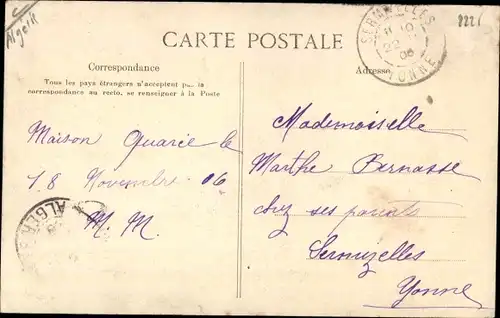 Algerie
8221
CARTE POSTALE
SERMIZELLES
YONNE
Correspondance
Adresse
Tous les pays étrangers n'acceptent pas la
correspondance au recto, se renseigner à la Poste
Maison Quarée le
18 Novembre 06
M. M.
ALGER
Mademoiselle
Marthe Bernasse
chez ses parents
Sermizelles
Yonne